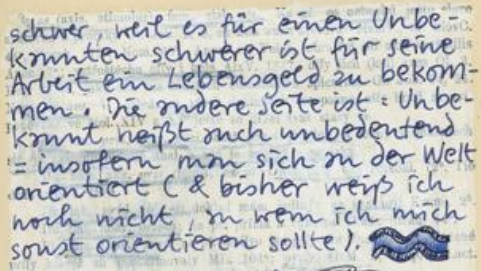 schwer, weil es für einen Unbe-
kannten schwerer ist für seine
Arbeit ein Lebensgeld zu bekom-
men. Die andere Seite ist: Unbe-
kannt heißt auch unbedeutend
= insofern man sich an der Welt
orientiert (& bisher weiß ich
noch nicht, an wem ich mich
sonst orientieren sollte).